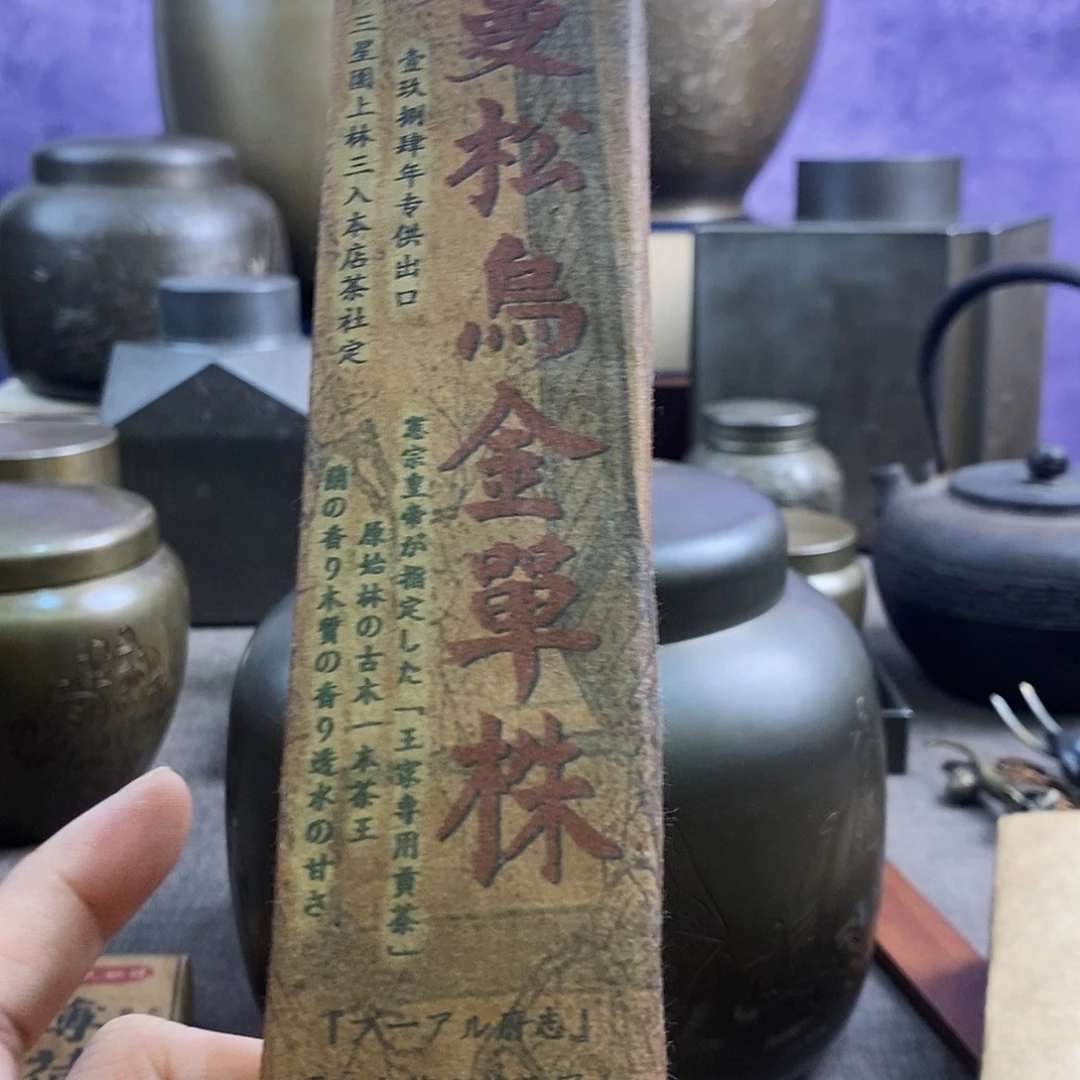 曼松烏金單株
壹玖捌肆年专供出口
三星園上林三入本店茶社定
憲宗皇帝が指定した「王家専用貢茶」
原始林の古木一本茶王
蘭の香り木質の香り透水の甘さ
『プーアル府志』